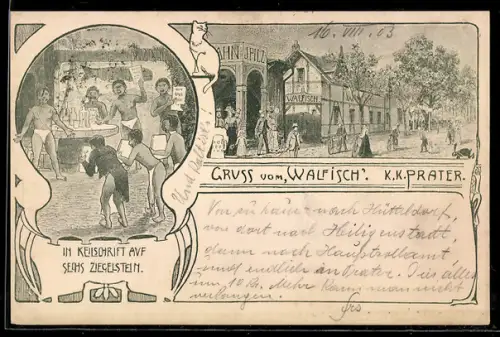 16. VIII. 03
WALFISCH
GRUSS VOM „WALFISCH". K.K. PRATER.
IN KEILSCHRIFT AUF
SECHS ZIEGELSTEIN.
Von zu hause nach Hütteldorf,
von dort nach Heiligenstadt
dann nach Hauptzollamt
und endlich in Prater. Dies alles
um 10 Kr. Mehr kann man nicht
verlangen.